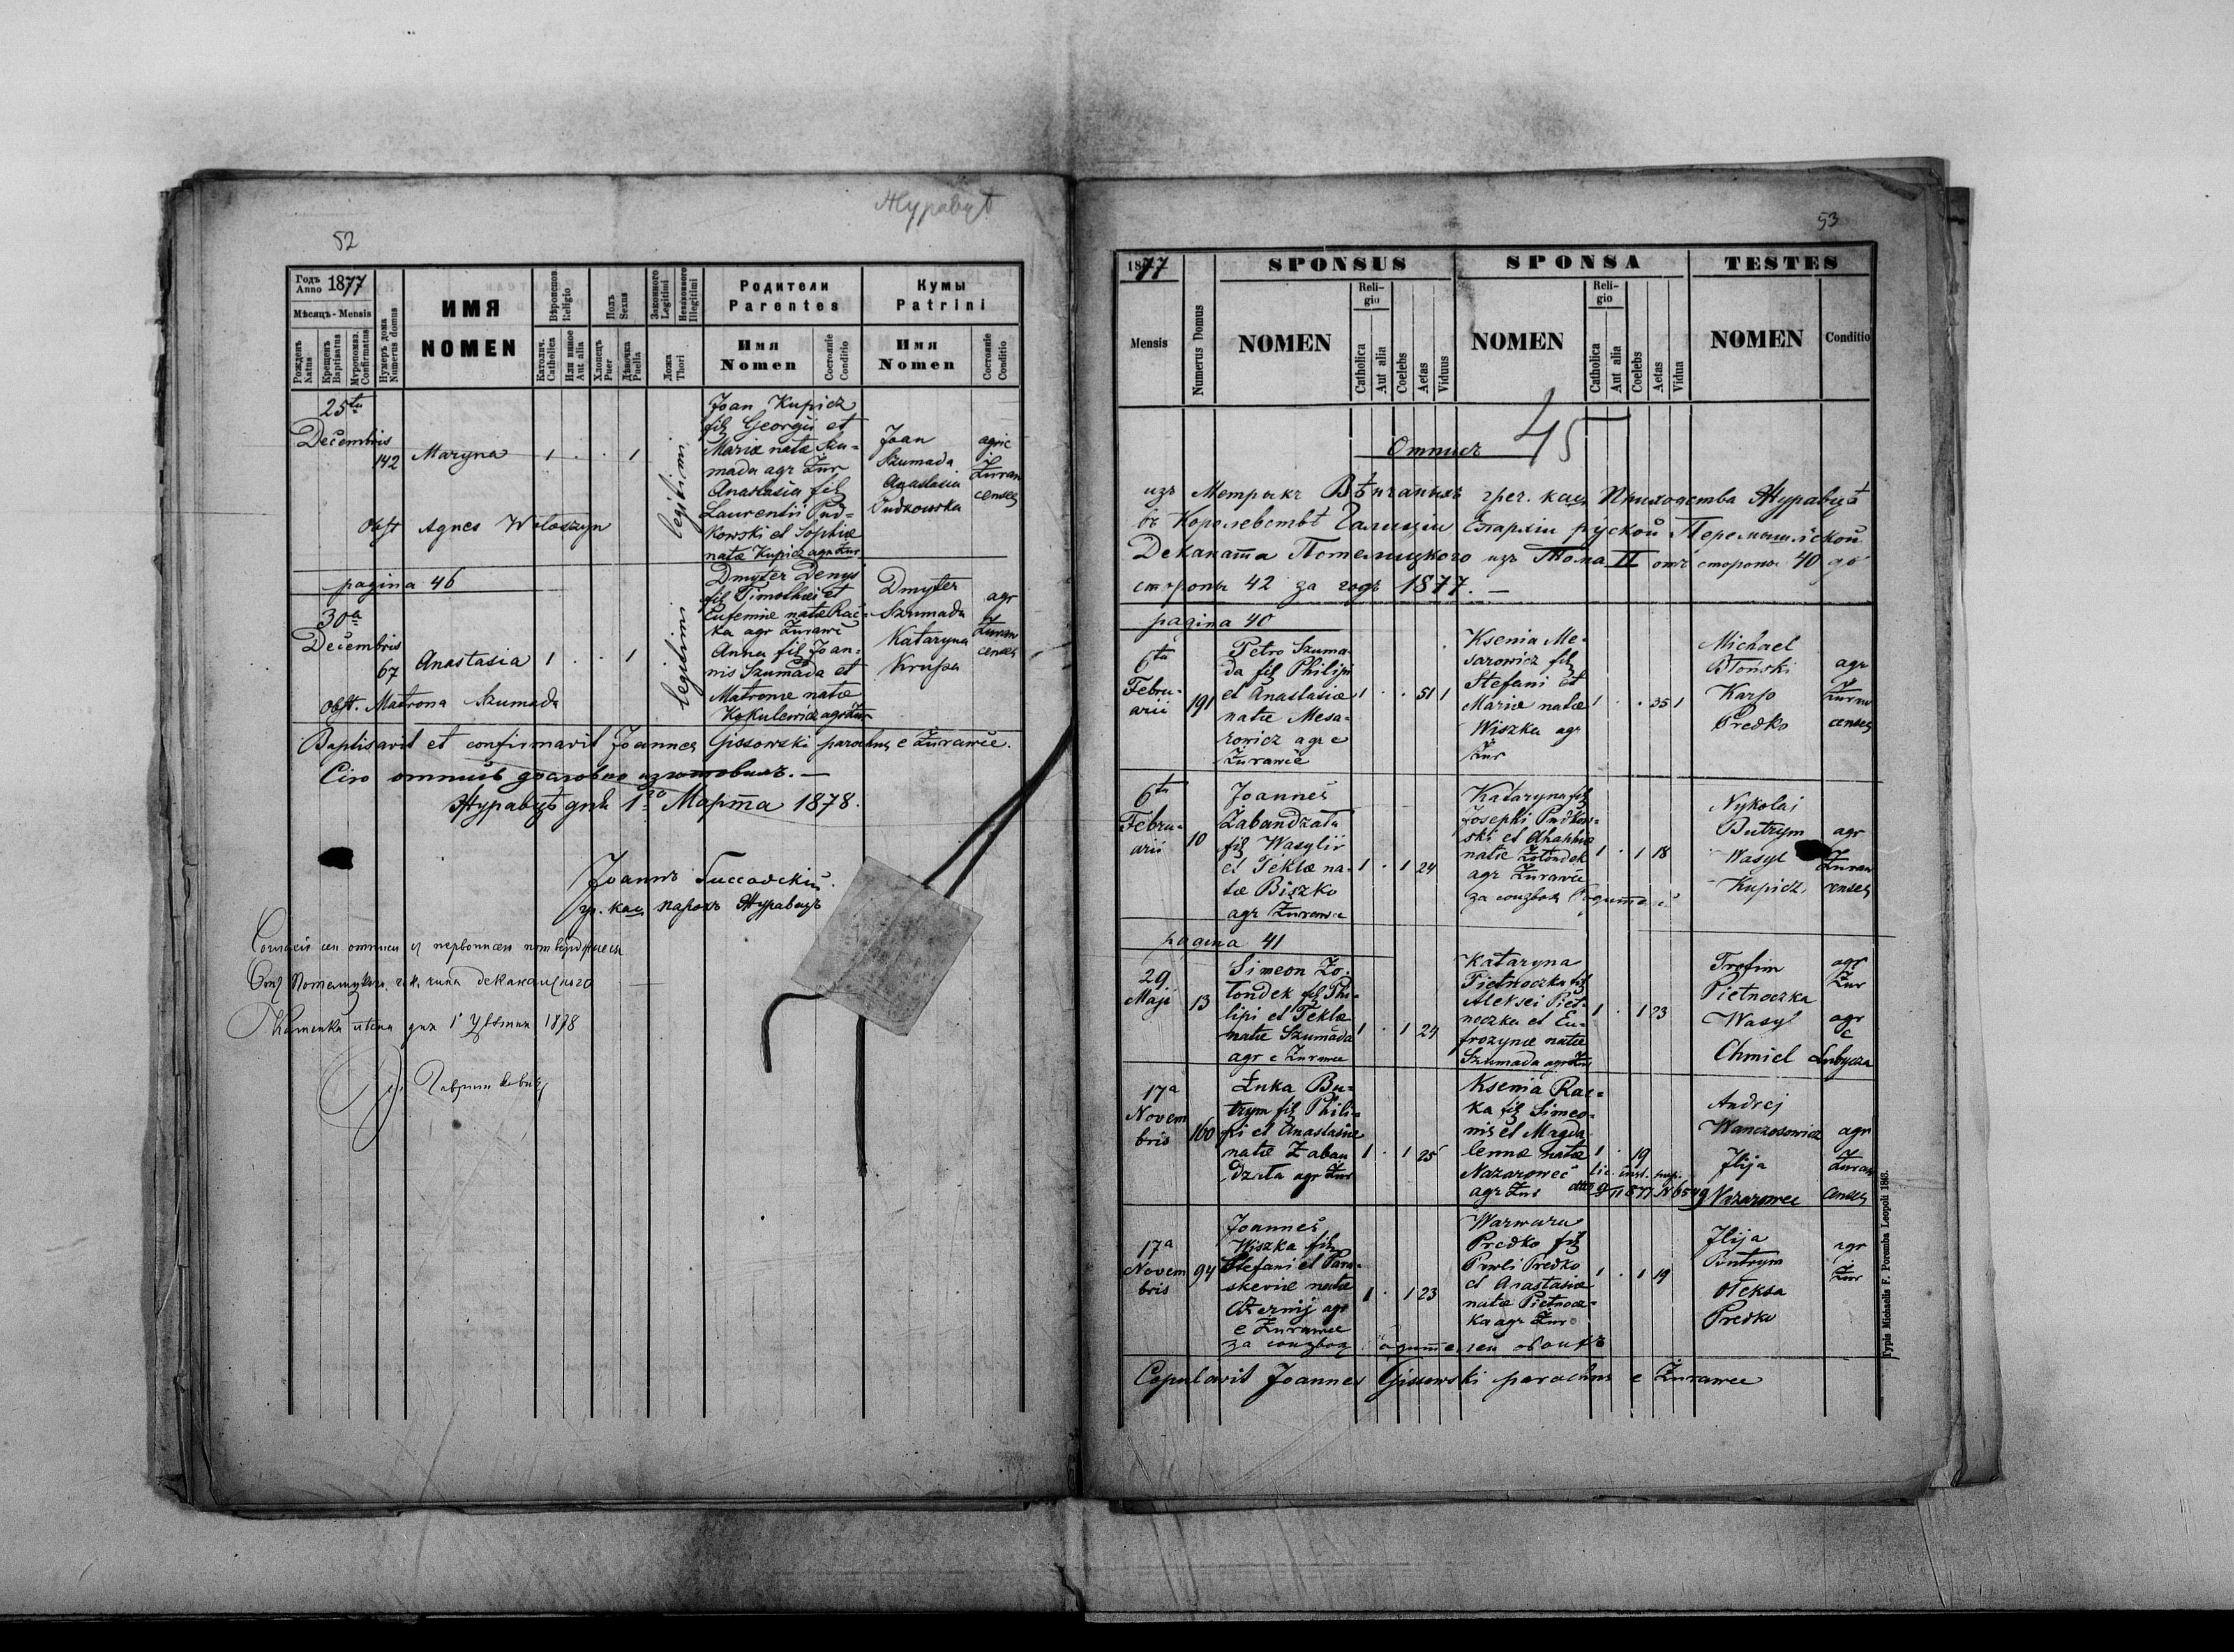 Журавцѣ
52
Годъ Anno 1877
Мѣсяцъ - Mensis
Рожденъ Natus
Крещенъ Baptisatus
Мѵропомаз. Confirmatus
Нумеръ дома Numerus domus
ИМЯ
NOMEN
Вѣроиспов. Religio
Католич. Catholica
Или инное Aut alia
Полъ Sexus
Хлопецъ Puer
Дѣвочка Puella
Законного Legitimi
Незаконного Illegitimi
Ложа Thori
Родители
Parentes
Имя Nomen
Состояніе Conditio
Кумы
Patrini
Имя Nomen
Состояніе Conditio
25ta
Decembris
142 Maryna 1 . . 1
legitimi
Joan Kupicz
fil Georgii et
Mariæ natæ Szu-
mada agr Żur
Anastasia fil
Laurentii Pud-
kowski et Sophiæ
natæ Kupicz agr Żur
Joan
Szumada
Anastasia
Pudkowska
agric
Żuraw
censes
Obst Agnes Wołoszyn
pagina 46
30a
Decembris
67 Anastasia 1 . . 1
legitimi
Dmyter Denys
fil Timothei et
Eufemiæ natæ Rac-
ka agr Żurawc
Anna fil Joan-
nis Szumada et
Matronæ natæ
Kokulewicz agr Żur
Dmyter
Szumada
Kataryna
Krupa
agr
Żuraw
censes
obst. Matrona Szumada
Baptisavit et confirmavit Joannes Gissowski parochus e Żurawce.
Сіго отписъ дословно изготовилъ. —
Журавцѣ днѣ 1го Марта 1878.
Іоаннъ Гиссовскій
гр. каѳ. парохъ Журавцѣ
53
1877
Mensis
Numerus Domus
SPONSUS
NOMEN
Religio
Catholica
Aut alia
Coelebs
Aetas
Viduus
SPONSA
NOMEN
Religio
Catholica
Aut alia
Coelebs
Aetas
Vidua
TESTES
NOMEN
Conditio
Отписъ 45
изъ Метрыкъ Вѣнчаныхъ греч. каѳ. Приходства Журавцѣ
въ Королевствѣ Галиціи Епархіи рускои Перемышлскои
Деканата Потелицкого изъ Тома II отъ стороны 40 до
стороны 42 за годъ 1877. —
pagina 40
6ta
Febru-
arii
191
Petro Szuma-
da fil Philipi
et Anastasiæ
natæ Mesa-
rowicz agr e
Żurawce
1 . . 51 1
Ksenia Me-
sarowicz fil
Stefani et
Mariæ natæ
Wiszka agr
Żur
1 . . 35 1
Michael
Błoński
Karpo
Predko
agr
Żuraw
censes
6ta
Febru-
arii
10
Joannes
Żabandzała
fil Wasylii
et Teklæ na-
tæ Biszko
agr Żurawce
1 . 1 24
Kataryna fil
Josephi Pudkow-
ski et Ahaphiæ
natæ Zołondek
agr Żurawce
1 . 1 18
Nykolaj
Butrym
Wasyl
Kupicz
agr
Żuraw
censes
pagina 41
29
Maji
13
Simeon Zo-
łondek fil Phi-
lipi et Teklæ
natæ Szumada
agr e Żurawce
1 . 1 24
Kataryna
Pietnoczka fil
Aleksei Piet-
noczka et Eu-
frozynæ natæ
Szumada agr Żur
1 . 1 23
Trofim
Pietnoczka
Wasyl
Chmiel
agr
Żur
agr
e
Lubycza
17a
Novem
bris
160
Łuka Bu-
trym fil Phili-
pi et Anastasiæ
natæ Zaban
dzała agr Żur
1 . 1 25
Ksenia Rac-
ka fil Simeo-
nis et Magda
lennæ natæ
Nazarowec
agr Żur
1 . 19
Andrej
Wanczosowicz
Ilija
Nazarowec
agr
Żuraw
censes
17a
Novem
bris
94
Joannes
Wiszka fil
Stefani et Para-
skeviæ natæ
Czernij agr
e Żurawce
1 . 1 23
Warwara
Predko fil
Pawli Predko
et Anastasiæ
natæ Pietnocz-
ka agr Żur
1 . 1 19
Ilija
Butrym
Ołeksa
Predko
agr
Żur
Copulavit Joannes Gissowski parochus e Żurawce
Typis Michaelis F. Poremba Leopoli 186